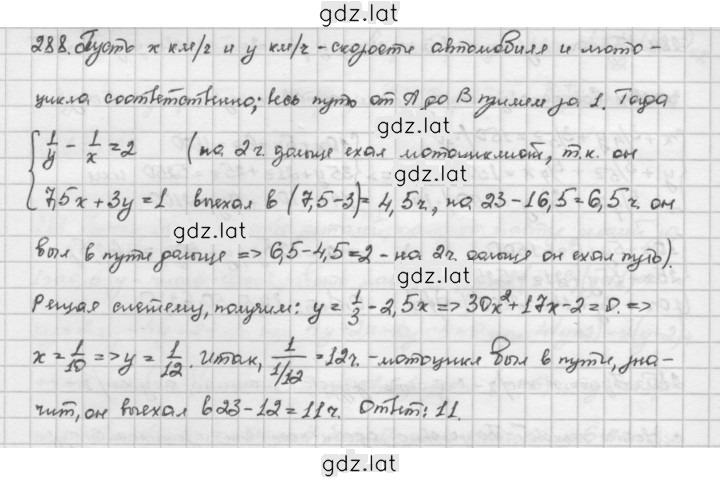 gdz.lat
288. Пусть x км/г и y км/ч - скорости автомобиля и мото-
цикла соответственно; весь путь от А до В примем за 1. Тогда
gdz.lat
{ 1/y - 1/x = 2 (на 2 г. дольше ехал мотоциклист, т.к. он
gdz.lat
7,5x + 3y = 1 выехал в (7,5-3) = 4,5ч, на 23-16,5 = 6,5ч. он
gdz.lat
был в пути дальше => 6,5-4,5=2 - на 2ч. дальше он ехал путь).
gdz.lat
Решая систему, получим: y = 1/3 - 2,5x => 30x²+17x-2=0. =>
gdz.lat
x = 1/10 => y = 1/12. Итак, 1/(1/12) = 12ч. - мотоцикл был в пути, зна-
чит, он выехал в 23-12=11ч. Ответ: 11.
gdz.lat